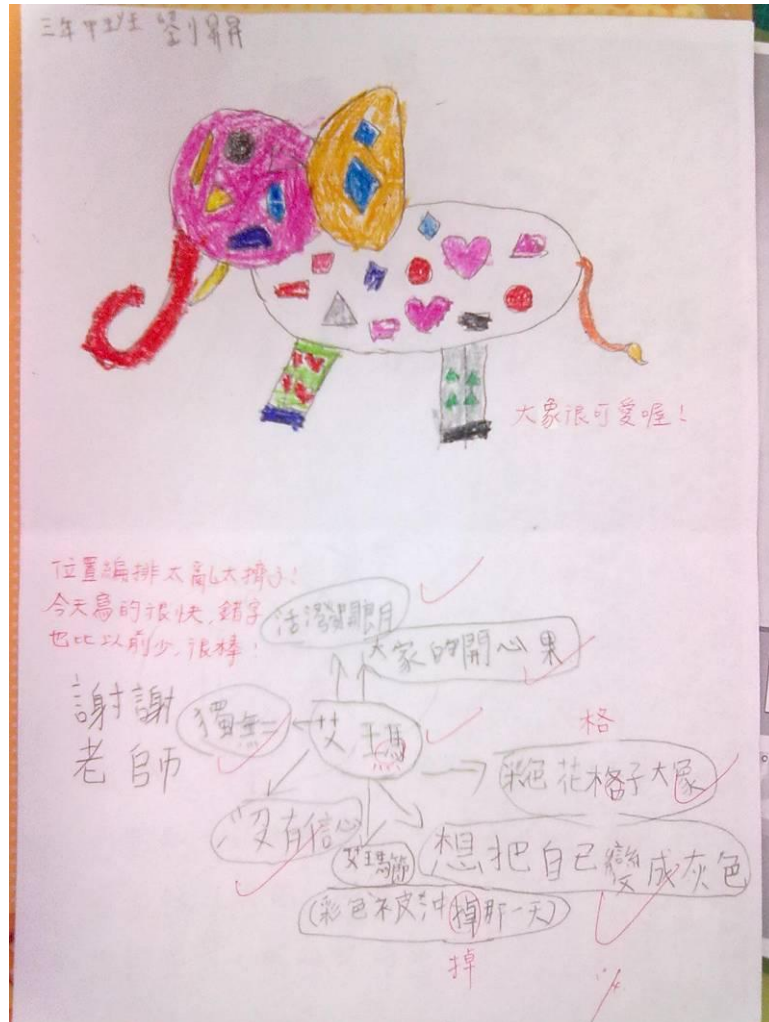 三年甲班 劉昇昇
大象很可愛喔！
位置編排太亂太擠了！
今天寫的很快，錯字
也比以前少，很棒！
謝謝
老師
活潑開朗
大家的開心果
獨無二
艾瑪
格
彩色花格子大象
沒有信心
艾瑪節
想把自己變成灰色
(彩色被沖掉那一天)
掉